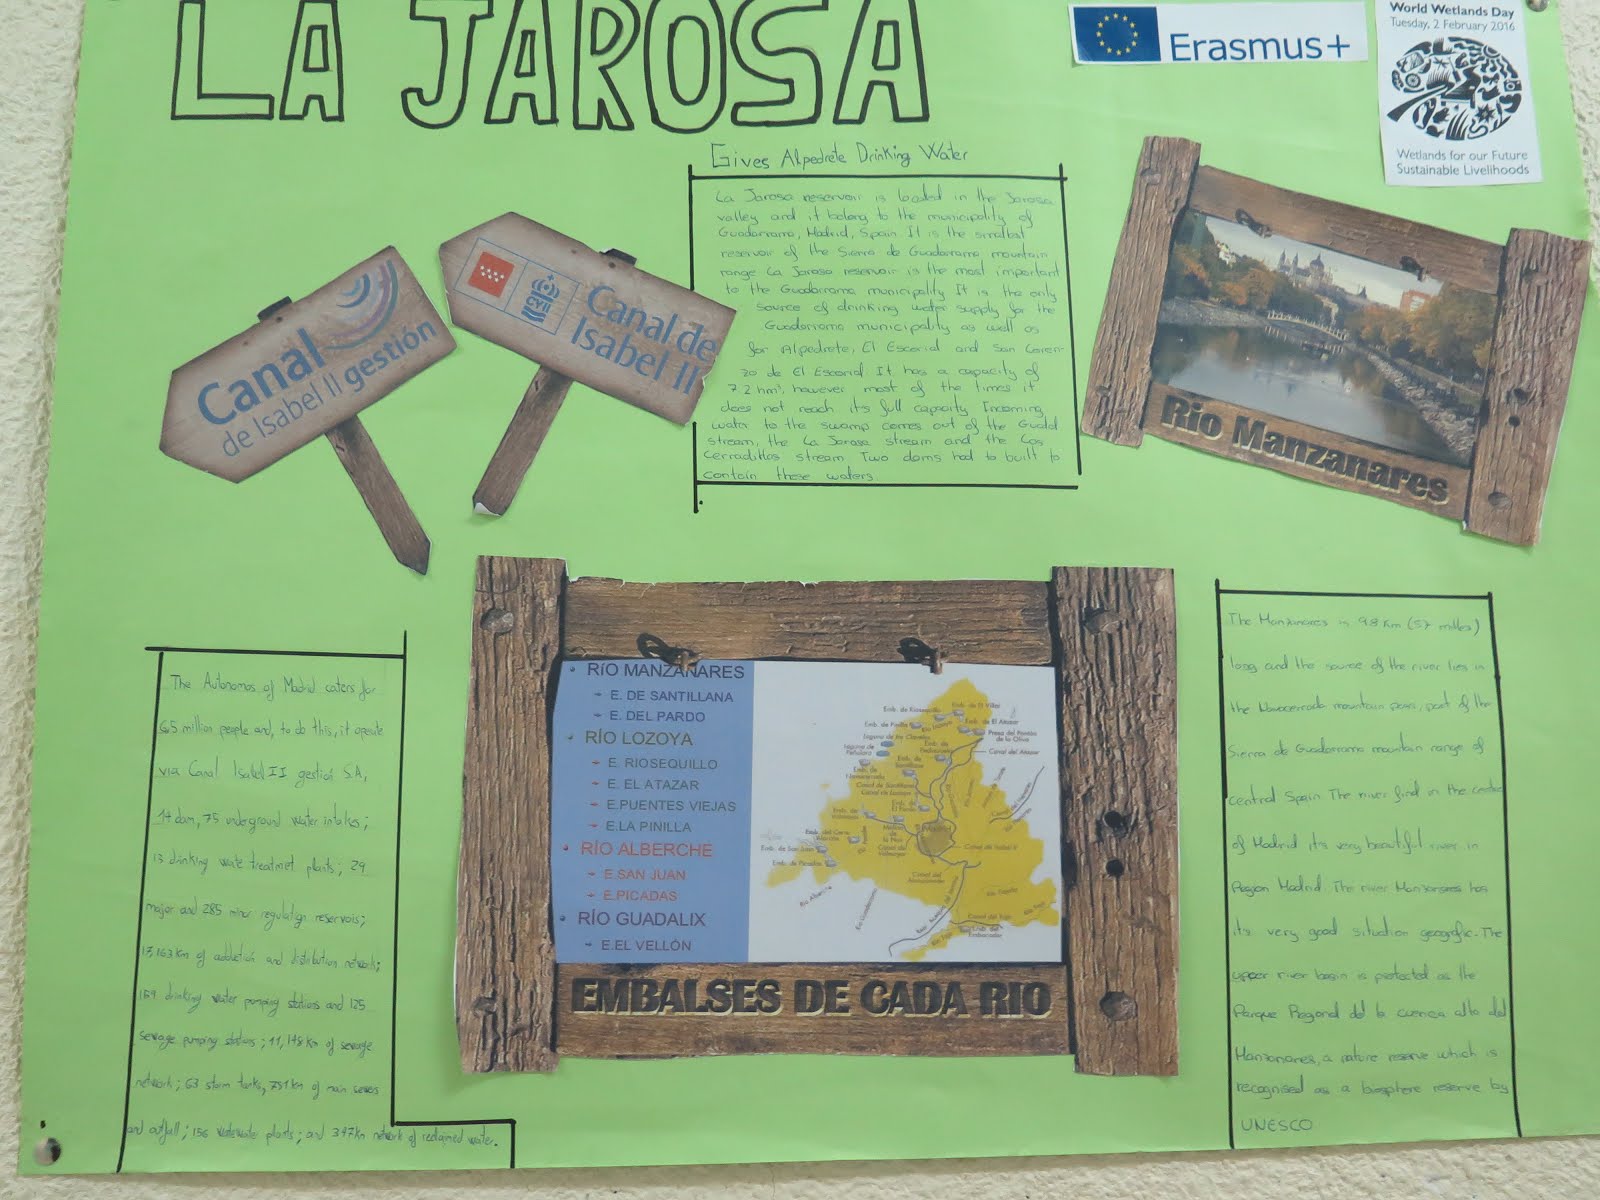 LA JAROSA
Erasmus+
World Wetlands Day
Tuesday, 2 February 2016
Wetlands for our Future
Sustainable Livelihoods
Gives Alpedrete Drinking Water
La Jarosa reservoir is located in the Jarosa
valley and it belong to the municipality of
Guadarrama, Madrid, Spain. It is the smallest
reservoir of the Sierra de Guadarrama mountain
range La Jarosa reservoir is the most important
to the Guadarrama municipality It is the only
source of drinking water supply for the
Guadarrama municipality as well as
for Alpedrete, El Escorial and San Loren-
zo de El Escorial It has a capacity of
7.2 hm³, however most of the times it
does not reach it's full capacity Incoming
water to the swamp comes out of the
stream, the La Jarosa stream and the Los
Cerradillos stream Two dams had to built to
contain these waters
Canal
de Isabel II gestión
CYII
Canal de
Isabel II
Río Manzanares
RÍO MANZANARES
E. DE SANTILLANA
E. DEL PARDO
RÍO LOZOYA
E. RIOSEQUILLO
E. EL ATAZAR
E.PUENTES VIEJAS
E.LA PINILLA
RÍO ALBERCHE
E.SAN JUAN
E.PICADAS
RÍO GUADALIX
E.EL VELLÓN
Emb. de El Villar
Emb. de El Atazar
Canal del Atazar
Madrid
Emb. de San Juan
Emb. de Picadas
Río Alberche
Río Guadarrama
EMBALSES DE CADA RIO
The Autonomas of Madrid caters for
6.5 million people and, to do this, it operate
via Canal Isabel II gestión S.A,
14 dam, 75 underground water intakes;
13 drinking wate treatmet plants; 29
major and 285 minor regulation reservois;
km of adduction and distribution network;
drinking water pumping stations and 125
sewage pumping stations; km of sewage
network; 63 storm tanks, km of main sewers
and outfall; 156 plants; and 347km network of reclaimed water.
The Manzanares is 98 km (57 milles)
long and the source of the river lies in
the Navacerrada mountain pass, part of the
Sierra de Guadarrama mountain range of
central Spain The river find in the centre
of Madrid it's very beautiful river in
Madrid. The river Manzanares has
it's very good situation geografic. The
upper river basin is protected as the
Parque Regional del la cuenca alta del
Manzanares, a nature reserve which is
recognised as a biosphere reserve by
UNESCO